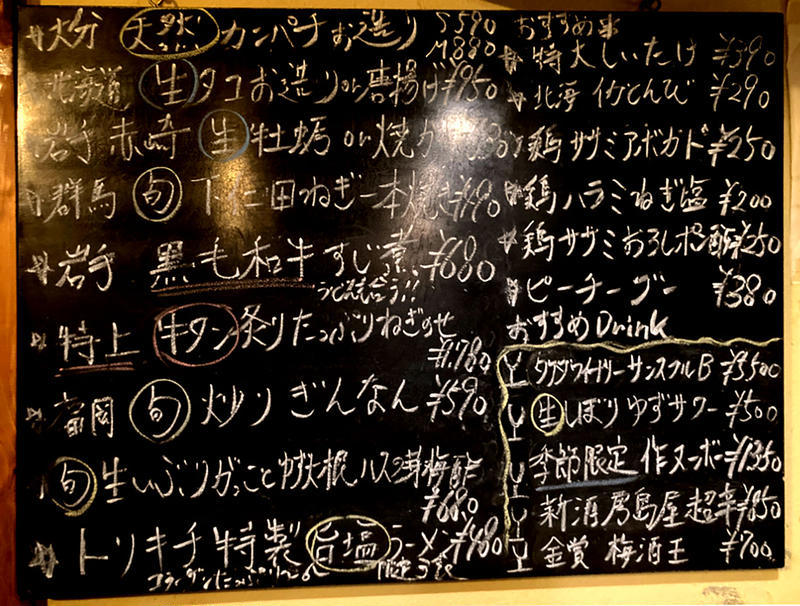 大分 天然 カンパチお造り S590 M880
北海道 生タコお造りor唐揚げ ¥950
岩手 赤崎 生牡蠣 or 焼が
群馬 旬 下仁田ねぎ一本焼き ¥490
岩手 黒毛和牛すじ煮 ¥680
特上 牛タン炙りたっぷりねぎのせ
¥1,780
旬 炒りぎんなん ¥590
旬 生いぶりがっこと
¥680
トリキチ特製 旨塩ラーメン ¥480
おすすめ
特大しいたけ ¥390
北海 イカとんび ¥290
鶏ササミアボカド ¥250
鶏ハラミねぎ塩 ¥200
鶏ササミおろしポン酢 ¥250
ピーチーグー ¥380
おすすめ Drink
¥3500
生しぼりゆずサワー ¥500
季節限定 作ヌーボー ¥1350
新酒 房島屋 超辛 ¥850
金賞 梅酒王 ¥700